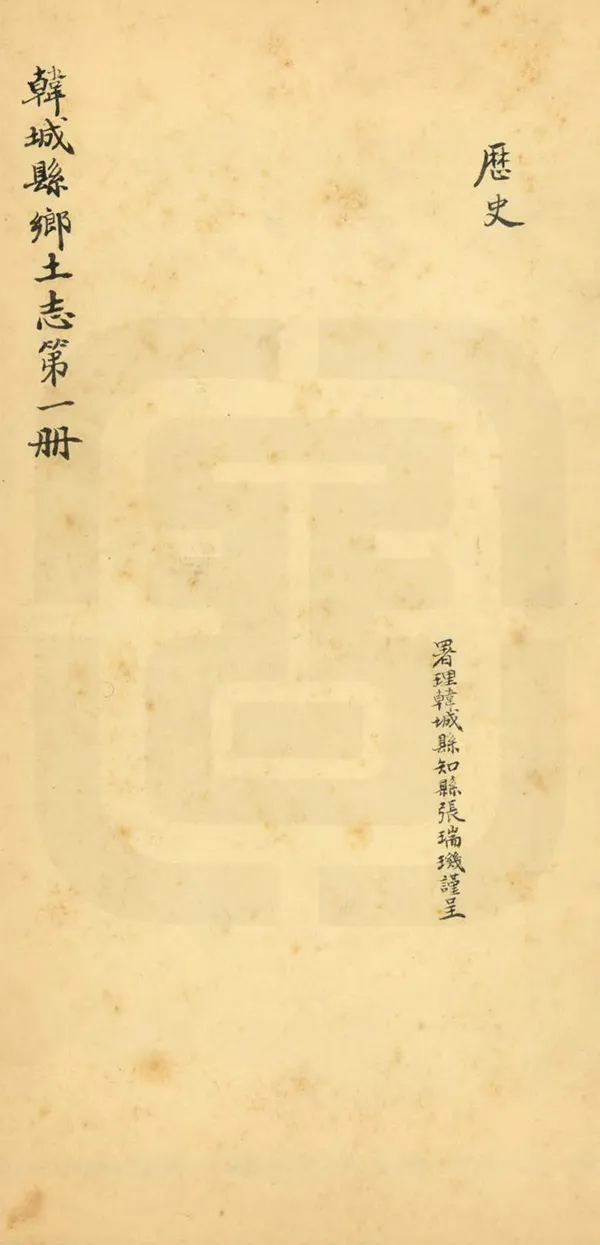 歷史
署理韓城縣知縣張瑞璣謹呈
韓城縣鄉土志第一册